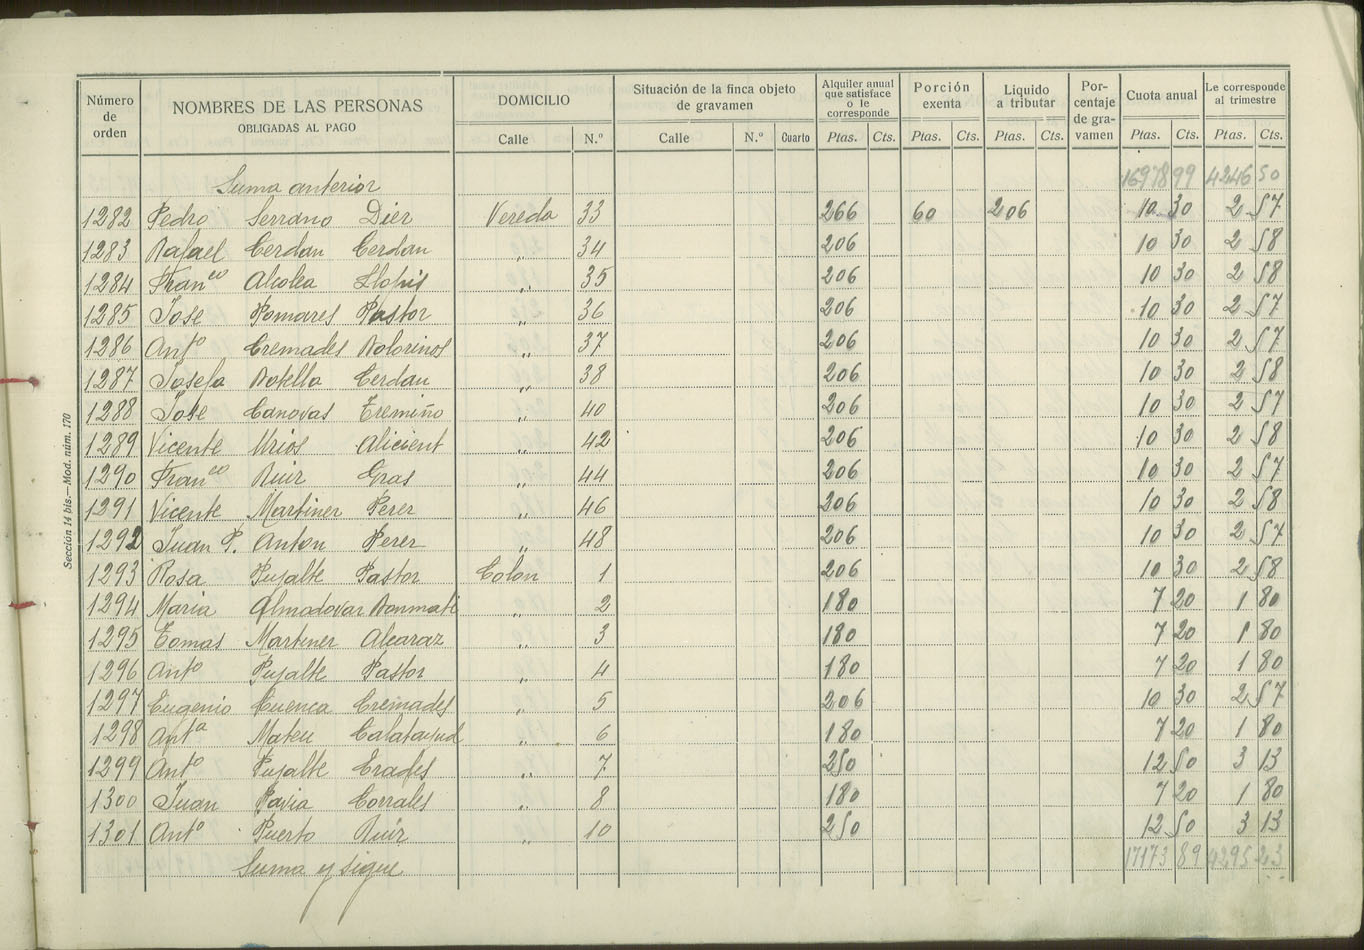 Número de orden NOMBRES DE LAS PERSONAS OBLIGADAS AL PAGO DOMICILIO Situación de la finca objeto de gravamen Alquiler anual que satisface o le corresponde Porción exenta Liquido a tributar Por-centaje de gra-vamen Cuota anual Le corresponde al trimestre
Calle N.º Calle N.º Cuarto Ptas. Cts. Ptas. Cts. Ptas. Cts. Ptas. Cts. Ptas. Cts.
Suma anterior 16978 99 4246 50
1282 Pedro Serrano Dier Vereda 33 266 60 206 10 30 2 57
1283 Rafael Cerdan Cerdan " 34 206 10 30 2 58
1284 Franco Alcolea Llopis " 35 206 10 30 2 58
1285 Jose Pomares Pastor " 36 206 10 30 2 57
1286 Anto Cremades Bolorinos " 37 206 10 30 2 57
1287 Josefa Botella Cerdan " 38 206 10 30 2 58
1288 Jose Canovas Tremiño " 40 206 10 30 2 57
1289 Vicente Mrios Alicient " 42 206 10 30 2 58
1290 Franco Ruiz Gras " 44 206 10 30 2 57
1291 Vicente Martinez Perez " 46 206 10 30 2 58
1292 Juan P. Anton Perez " 48 206 10 30 2 57
1293 Rosa Pujalte Pastor Colon 1 206 10 30 2 58
1294 Maria Almodovar Bonmati " 2 180 7 20 1 80
1295 Tomas Martinez Alcaraz " 3 180 7 20 1 80
1296 Anto Pujalte Pastor " 4 180 7 20 1 80
1297 Eugenio Cuenca Cremades " 5 206 10 30 2 57
1298 Anta Mateu Calatayud " 6 180 7 20 1 80
1299 Anto Pujalte Erades " 7 250 12 50 3 13
1300 Juan Pavia Corrales " 8 180 7 20 1 80
1301 Anto Puerto Ruiz " 10 250 12 50 3 13
Suma y sigue 17173 89 4295 23
Sección 14 bis.—Mod. núm. 170